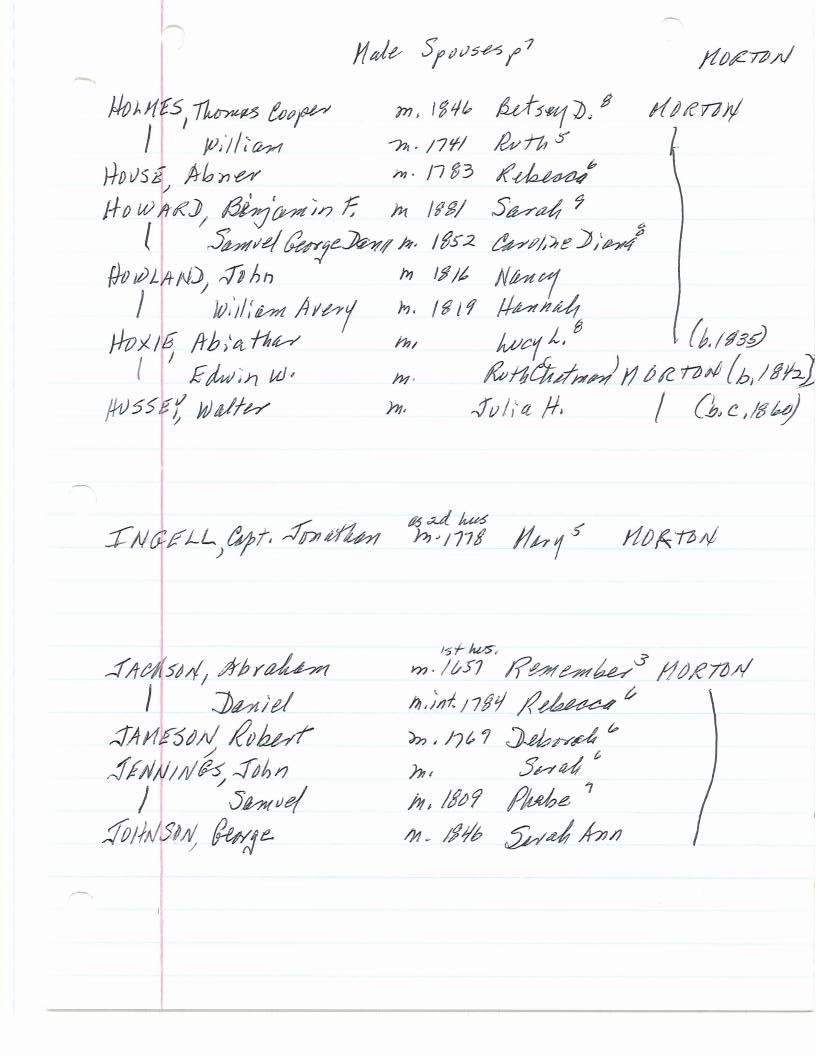 Male Spouses p7 MORTON
HOLMES, Thomas Cooper m. 1846 Betsey D.⁸ MORTON
| William m. 1741 Ruth⁵ |
HOUSE, Abner m. 1783 Rebecca⁶
HOWARD, Benjamin F. m 1881 Sarah⁹
| Samuel George Dana m. 1852 Caroline Diana⁸
HOWLAND, John m 1816 Nancy
| William Avery m. 1819 Hannah
HOXIE, Abiathar m. Lucy L.⁸ (b.1835)
| Edwin W. m. Ruth (Chatman) MORTON (b.1842)
HUSSEY, Walter m. Julia H. | (b.c.1860)
as 2d hus
INGELL, Capt. Jonathan m. 1778 Mary⁵ MORTON
1st hus.
JACKSON, Abraham m. 1657 Remember³ MORTON
| Daniel m.int. 1784 Rebecca⁶ |
JAMESON, Robert m. 1769 Deborah⁶
JENNINGS, John m. Sarah⁶
| Samuel m. 1809 Phebe⁷
JOHNSON, George m. 1846 Sarah Ann